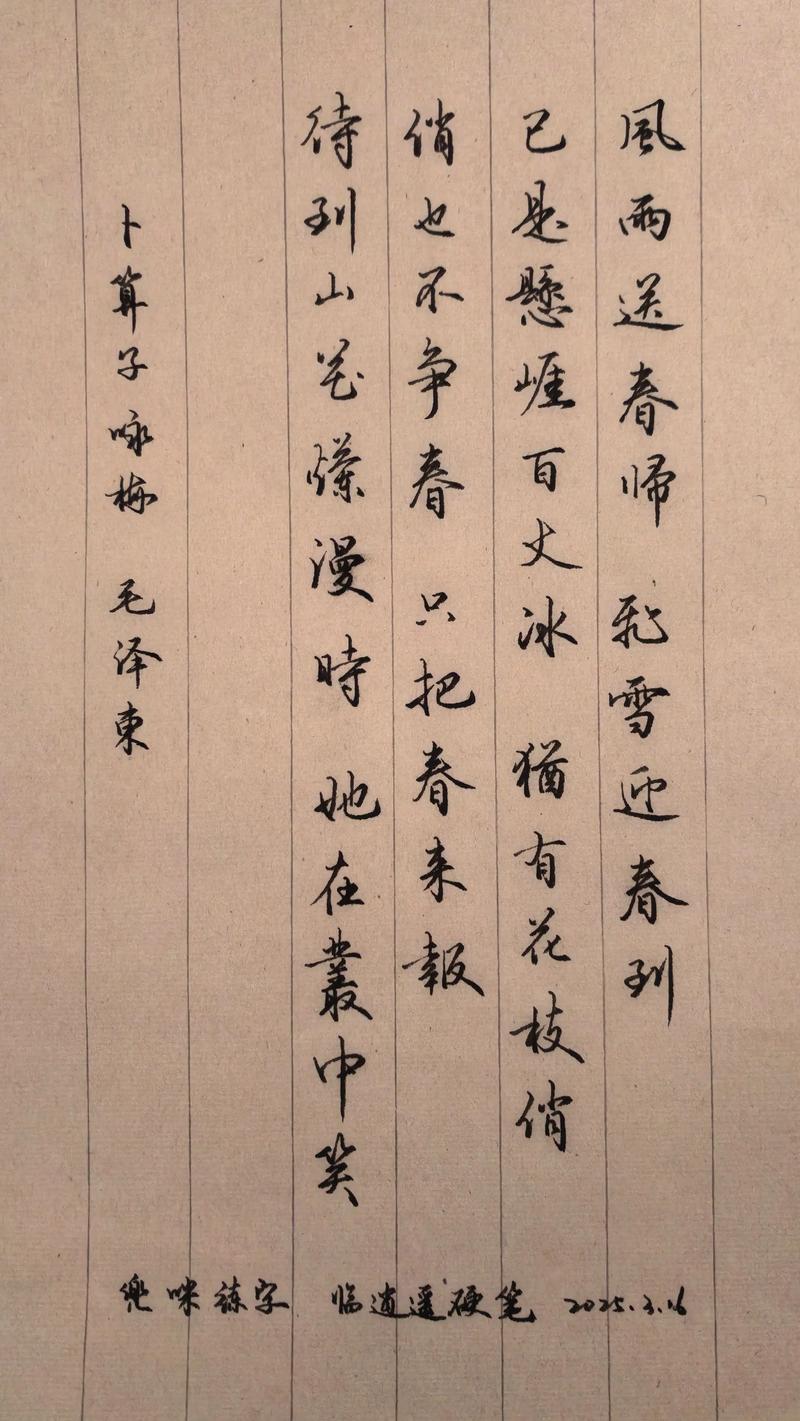 風雨送春归 飛雪迎春到
已是懸崖百丈冰 猶有花枝俏
俏也不争春 只把春来報
待到山花爛漫時 她在叢中笑
卜算子咏梅 毛泽東
兜咪练字 临逍遥硬笔 2025.3.16